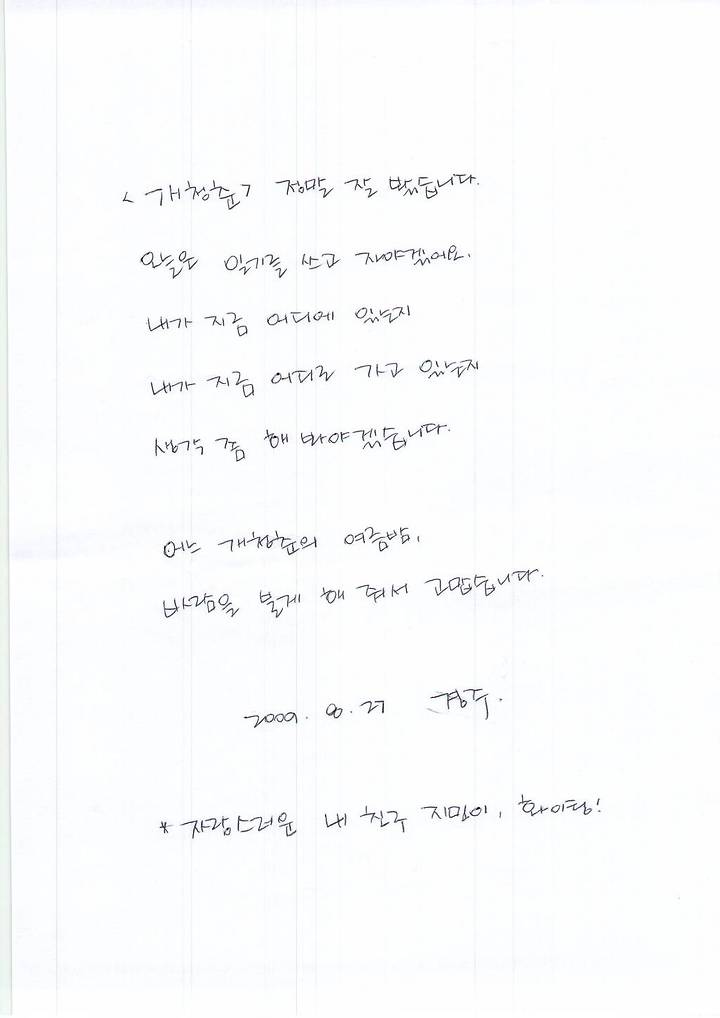 <개청춘> 정말 잘 봤습니다.
오늘은 일기를 쓰고 자야겠어요.
내가 지금 어디에 있는지
내가 지금 어디로 가고 있는지
생각 좀 해 봐야겠습니다.
어느 개청춘의 여름밤,
바람을 불게 해 줘서 고맙습니다.
2009. 8. 27 경주.
* 자랑스러운 내 친구 지민이, 화이팅!